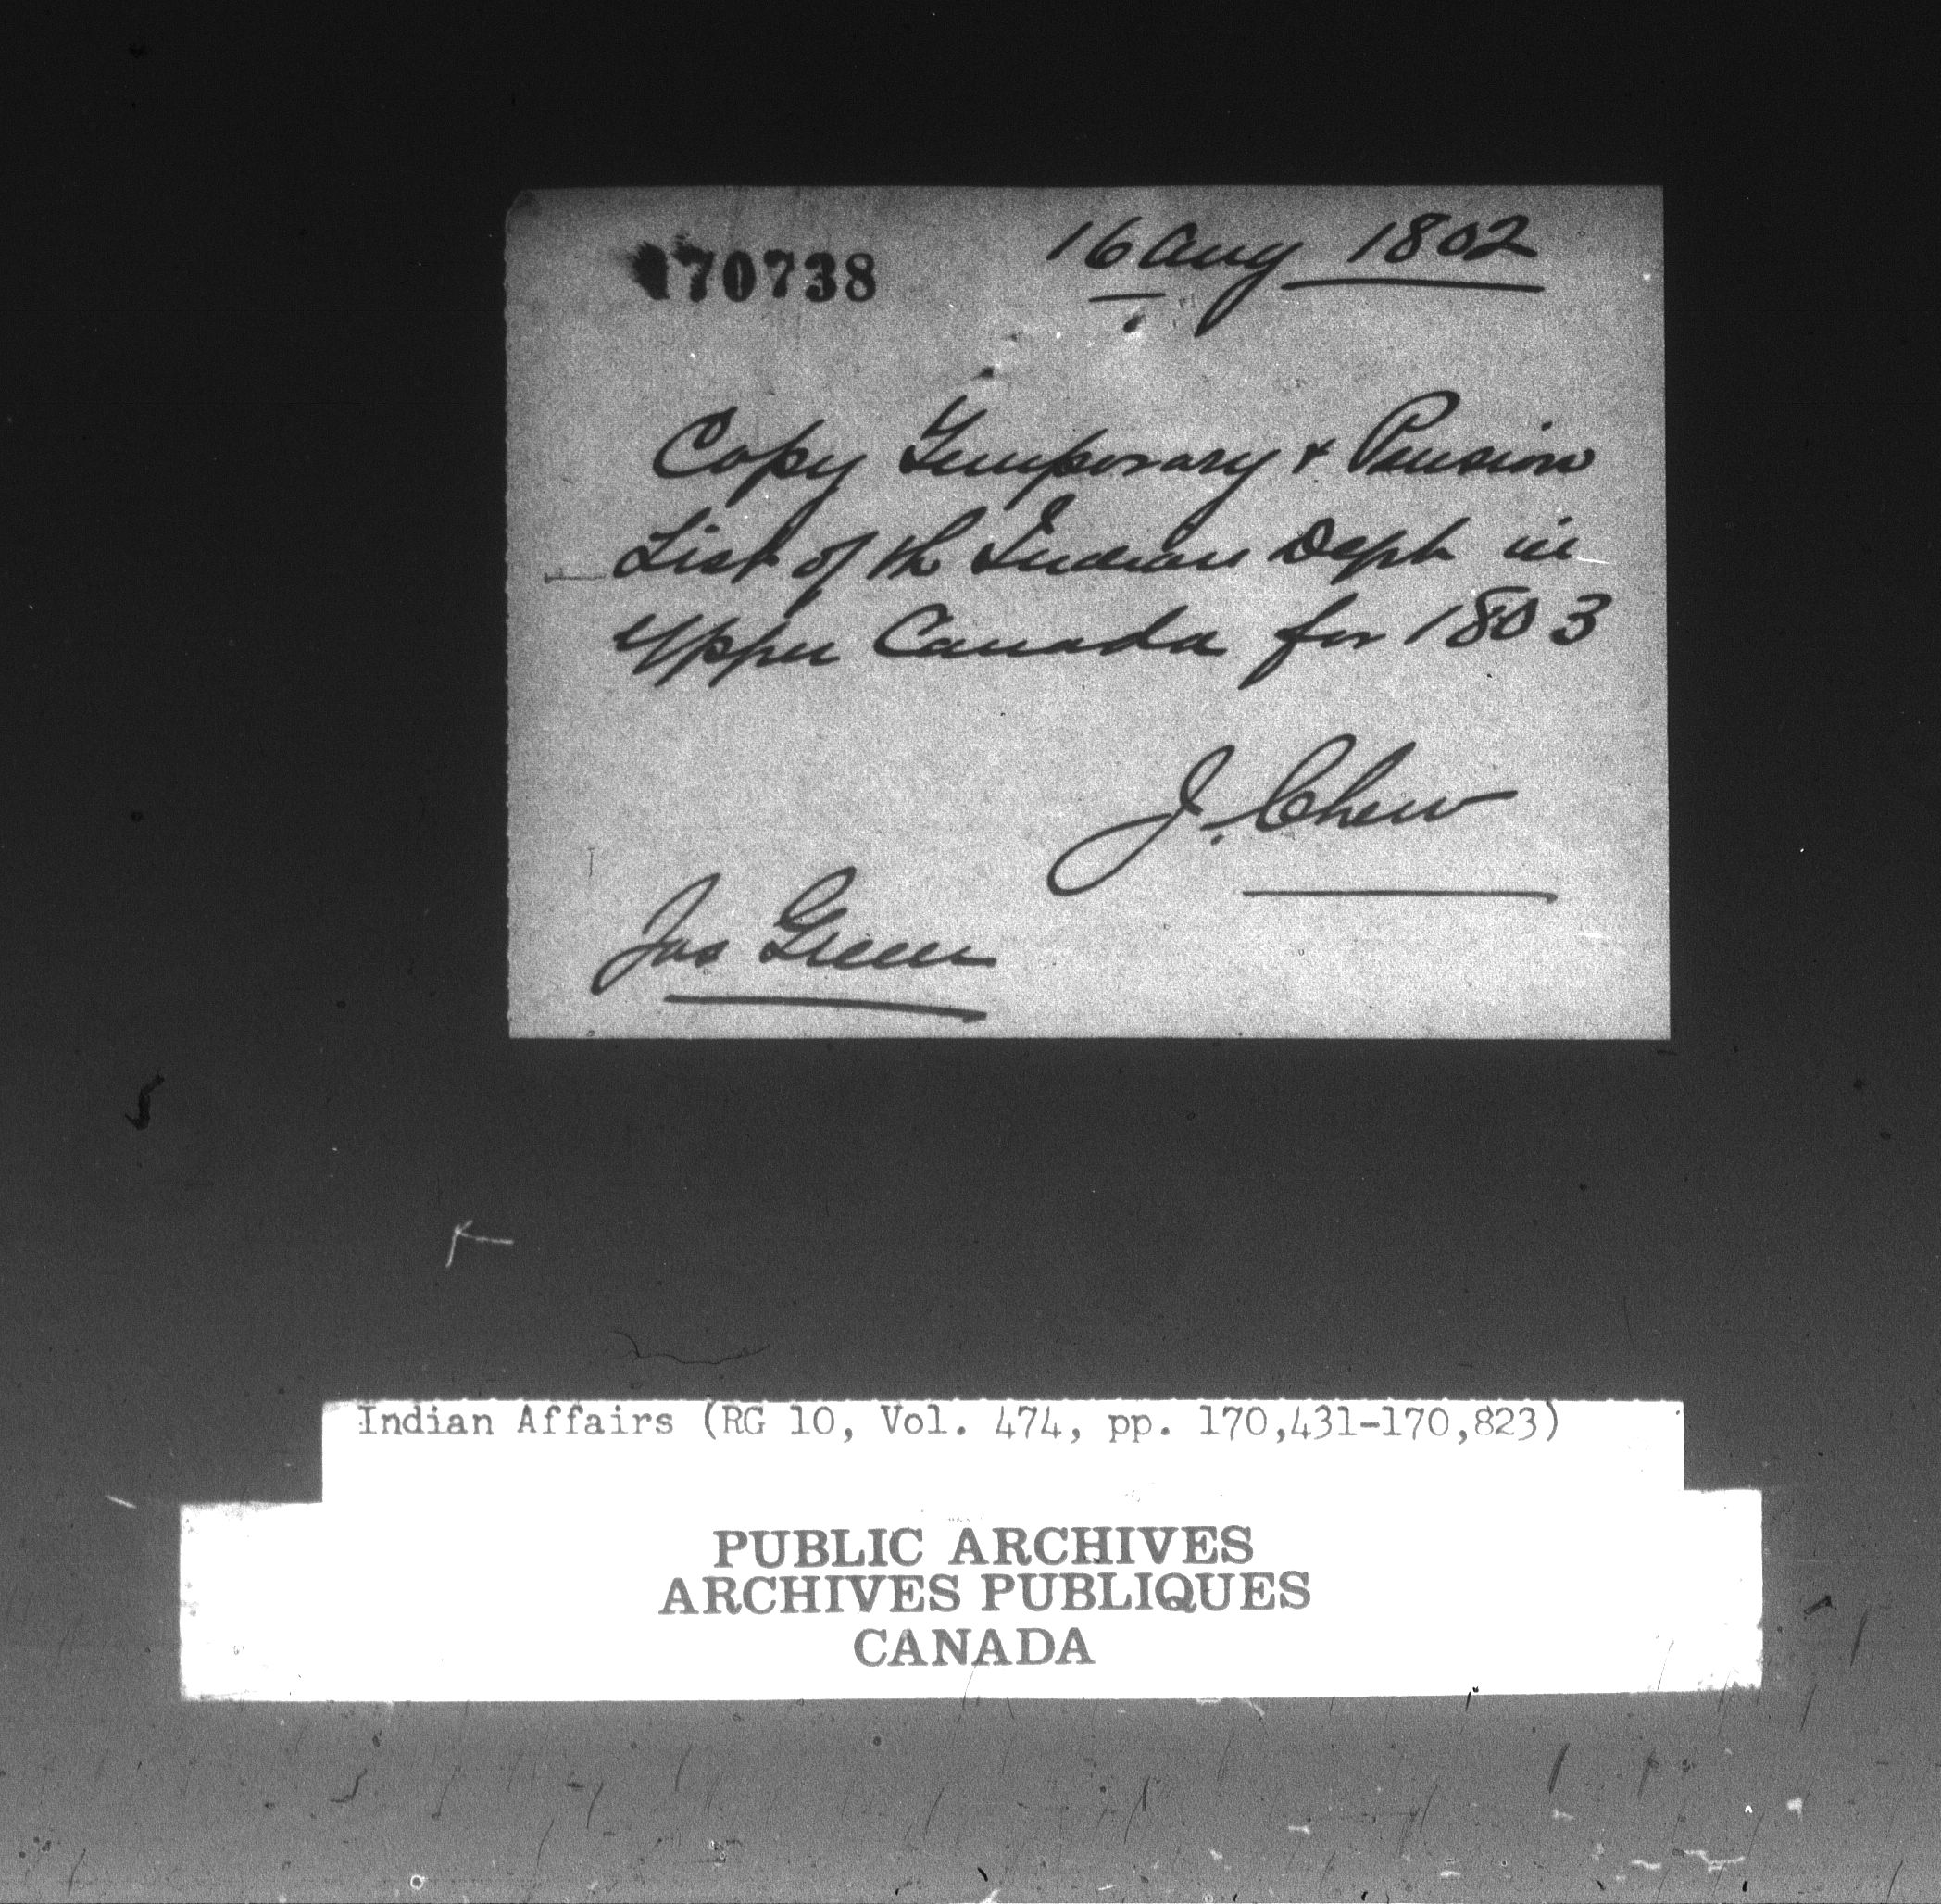 170738
16 Aug 1802
Copy Temporary & Pension
List of th Indian Dept in
Upper Canada for 1803
J. Chew
Jas Green
Indian Affairs (RG 10, Vol. 474, pp. 170,431-170,823)
PUBLIC ARCHIVES
ARCHIVES PUBLIQUES
CANADA